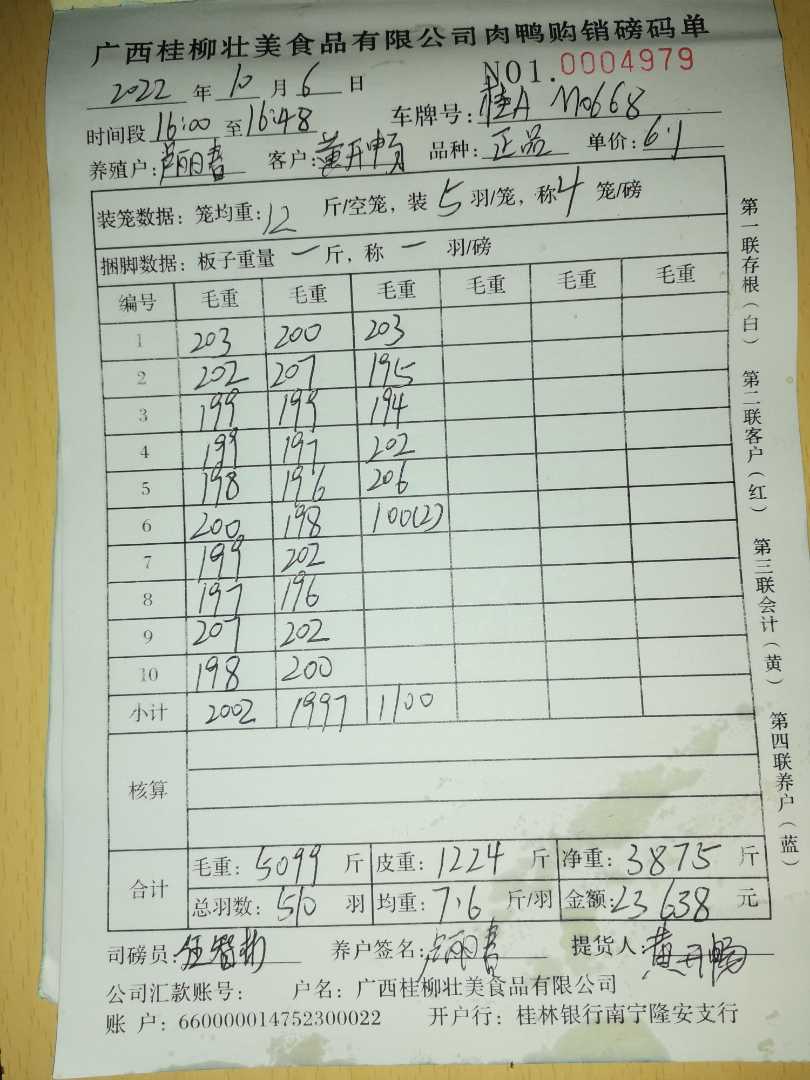 广西桂柳壮美食品有限公司肉鸭购销磅码单
2022 年 10 月 6 日 NO1.0004979
时间段 16:00 至 16:48 车牌号: 桂A M0668
养殖户: 卢丽春 客户: 黄开畅 品种: 正品 单价: 6.1
装笼数据: 笼均重: 12 斤/空笼, 装 5 羽/笼, 称 4 笼/磅
捆脚数据: 板子重量 一 斤, 称 一 羽/磅
编号 毛重 毛重 毛重 毛重 毛重 毛重
1 203 200 203
2 202 207 195
3 199 199 194
4 199 197 202
5 198 196 206
6 200 198 100(2)
7 199 202
8 197 196
9 207 202
10 198 200
小计 2002 1997 1100
核算
合计
毛重: 5099 斤 皮重: 1224 斤 净重: 3875 斤
总羽数: 510 羽 均重: 7.6 斤/羽 金额: 23638 元
司磅员: 养户签名: 卢丽春 提货人: 黄开畅
公司汇款账号: 户名: 广西桂柳壮美食品有限公司
账 户: 660000014752300022 开户行: 桂林银行南宁隆安支行
第一联存根(白) 第二联客户(红) 第三联会计(黄) 第四联养户(蓝)